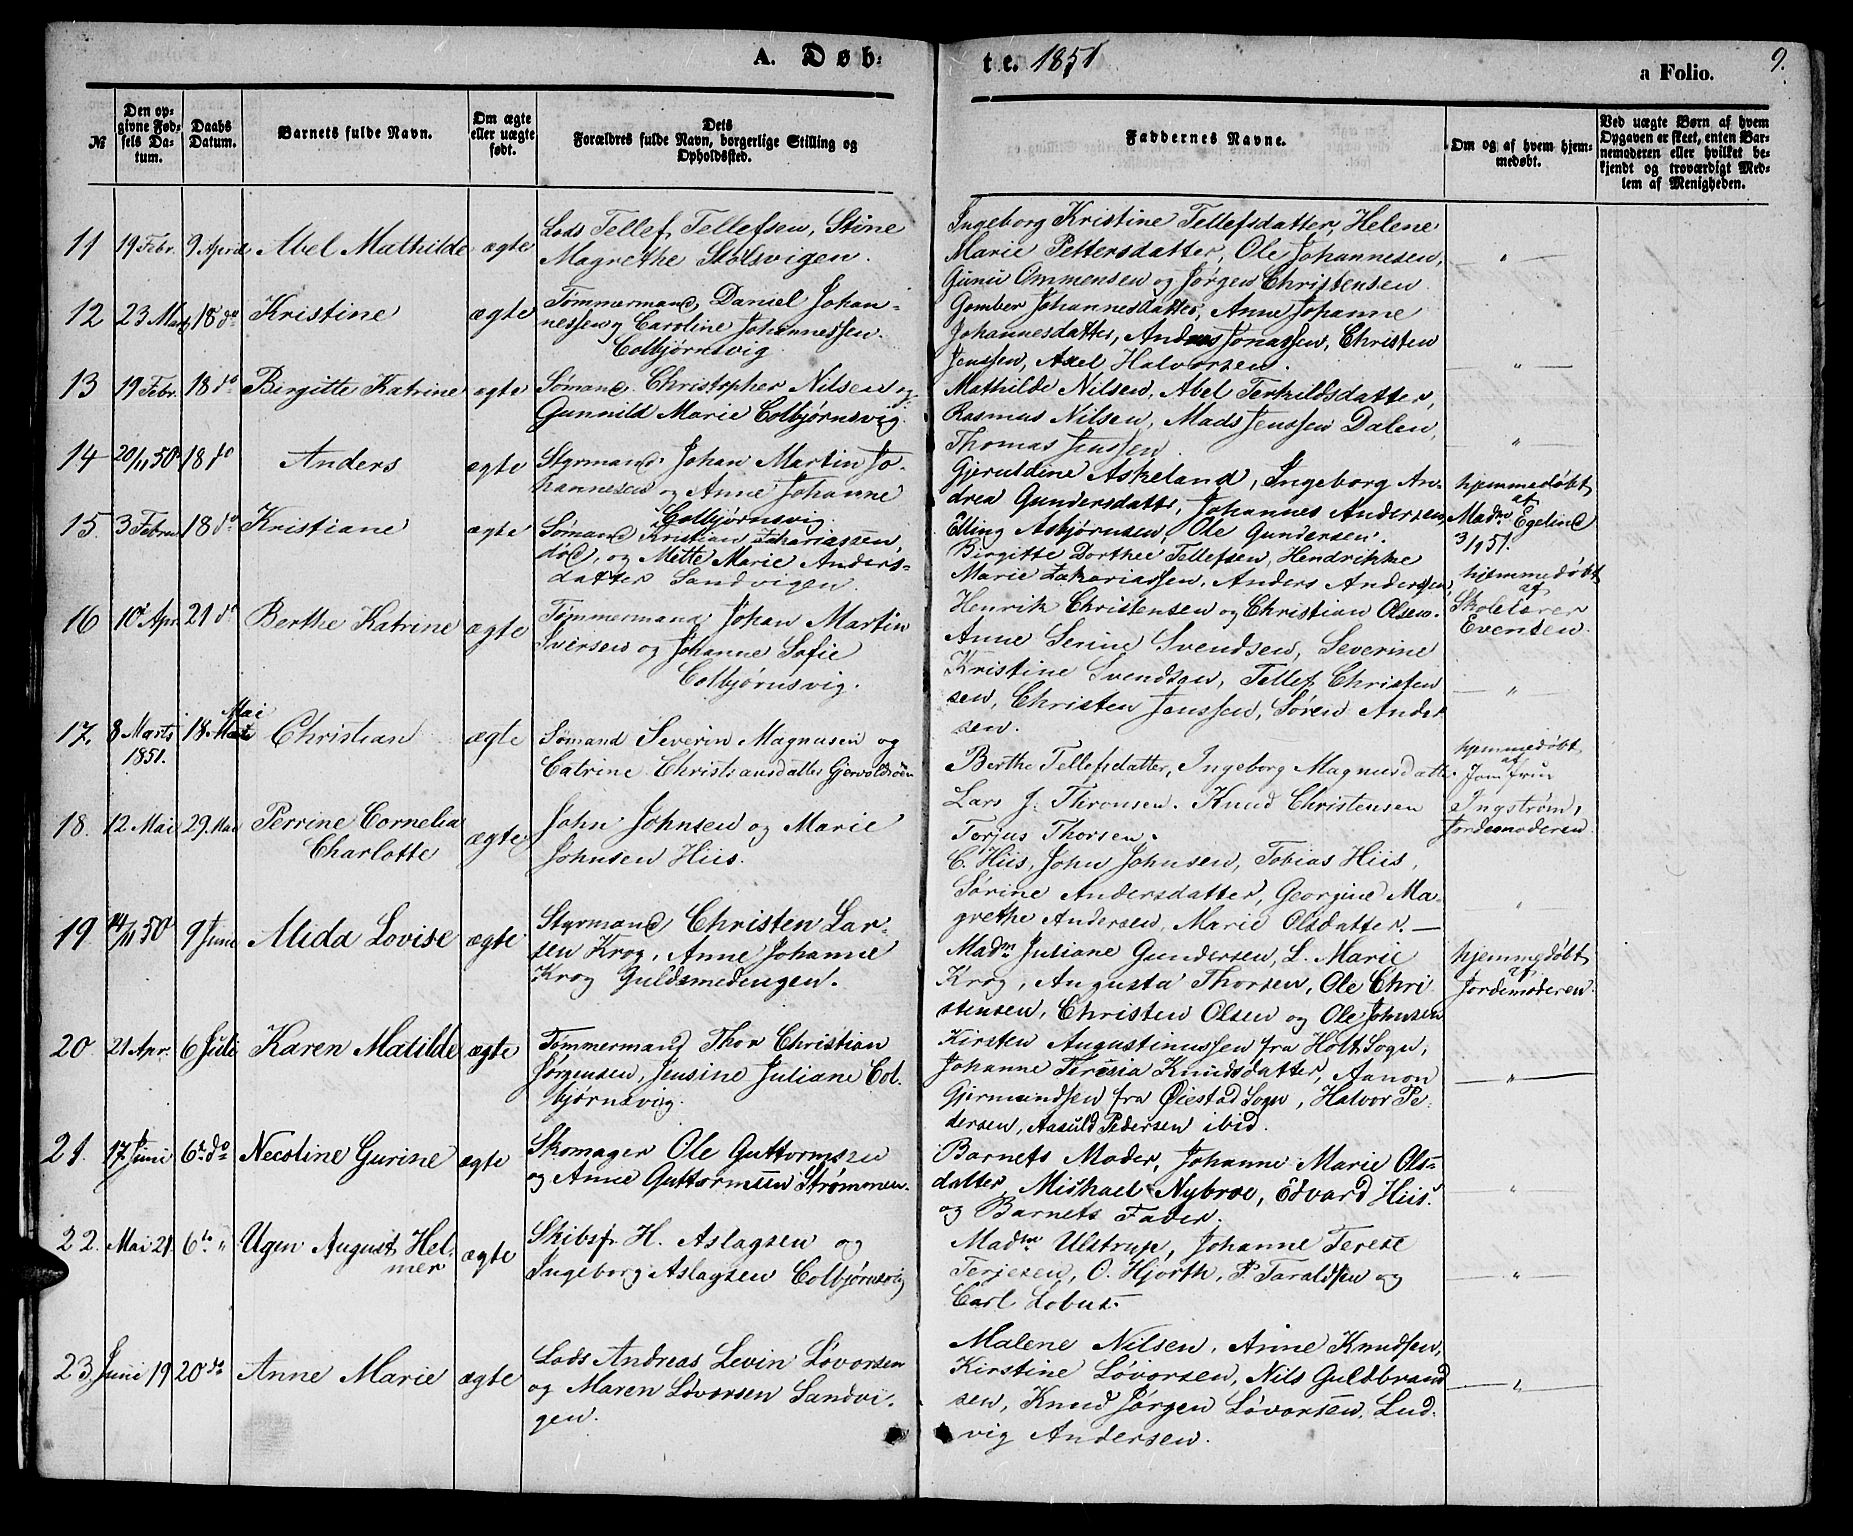 A. Døb-
te. 1851
a Folio. 9.
№
Den op-
givne Fød-
sels Da-
tum.
Daabs
Datum.
Barnets fulde Navn.
Om ægte
eller uægte
født.
Dets
Forældres fulde Navn, borgerlige Stilling og
Opholdssted.
Faddernes Navne.
Om og af hvem hjem-
medøbt.
Ved uægte Børn af hvem
Opgaven er skeet, enten Bar-
nemoderen eller hvilket be-
kjendt og troværdigt Med-
lem af Menigheden.
11 19 Febr. 9 April Abel Mathilde ægte
Lods Tellef Tellefsen, Stine
Magrethe Stølsvigen.
Ingeborg Kristine Tellefsdatter, Helene
Marie Pettersdatter, Ole Johannesen,
Gunu Ommensen og Jørgen Christensen
— " —
12 23 Marts 18 do Kristine ægte
Tømmermand, Daniel Johan-
nessen og Caroline Johannessen.
Colbjørnsvig
Gomber Johannesdatter, Anne Johanne
Johannesdatter, Anders Jonassen, Christen
Jenssen, Axel Halvorsen.
— " —
13 19 Febr. 18 do Birgitte Katrine ægte
Sømand Christopher Nilsen og
Gunnild Marie Colbjørnsvig.
Mathilde Nilsen, Abel Terkildsdatter,
Rasmus Nilsen, Mads Jenssen Dalen,
Thomas Jenssen.
— " —
14 20/11 50 18 do Anders ægte
Styrmand Johan Martin Jo-
hannesen og Anne Johanne
Colbjørnsvig.
Gjeruldine Askeland, Ingeborg An-
drea Gundersdatter, Johannes Andersen,
Elling Asbjørnsen, Ole Gundersen.
hjemmedøbt
af
Madm Egeline
3/1 51.
15. 3 Februar 18 do Kristiane ægte
Sømand Kristian Zakariassen,
død, og Mette Marie Anders-
datter Sandvigen.
Birgitte Dorthee Tellefsen, Hendrikke
Marie Zakariassen, Anders Andersen,
Henrik Christensen og Christian Olsen.
hjemmedøbt
af
Skolelærer
Evensen.
16 10 Apr. 21 do Berthe Katrine ægte
Tømmermand Johan Martin
Iversen og Johanne Sofie
Colbjørnsvig.
Anne Serine Svendsen, Severine
Kristine Svendsen, Tellef Christen
sen, Christen Jenssen, Søren Ander
sen.
— " —
17. 8 Marts
1851. 18 Mai Christian ægte
Sømand Severin Magnusen og
Catrine Christiansdatter Gjervoldsøen
Berthe Tellefsdatter, Ingeborg Magnusdatter
Lars J. Thronsen. Knud Christensen
Torjus Thorsen.
hjemmedøbt
af
Jomfrue
Ingstrøm,
Jordemoderen
18. 12 Mai 29. Mai Perrine Cornelia
Charlotte ægte
John Johnsen og Marie
Johnsen Hiis.
C. Hiis, John Johnsen, Tobias Hiis,
Sørine Andersdatter, Georgine Ma-
grethe Andersen, Marie Olsdatter. —
"
19 14/11 50 9 Juni Alida Lovise ægte
Styrmand Christen Lar-
sen Krog, Anne Johanne
Krog Guldsmedengen.
Madm Juliane Gundersen, L. Marie
Krog, Augusta Thorsen, Ole Chri
stensen, Christen Olsen og Ole Johnsen
hjemmedøbt
af
Jordemoderen.
20. 21 Apr. 6 Juli Karen Matilde ægte
Tømmermand Thor Christian
Jørgensen, Jensine Juliane Col-
bjørnsvig.
Kirsten Augustinussen fra Holt Sogn,
Johanne Teresia Knudsdatter, Aanon
Gjermundsen fra Øiestad Sogn, Halvor Pe-
dersen, Aasuld Pedersen ibid.
— " —
21. 17 Juni 6te do Necoline Gurine ægte
Skomager Ole Guttormsen
og Anne Guttormsen Strømmen.
Barnets Moder, Johanne Marie Ols-
datter, Mickael Nybroe, Edvard Hiis
og Barnets Fader.
— " —
22. Mai 21. 6te " Ugen August Hel-
mer ægte
Skibsf. H. Aslagsen og
Ingeborg Aslagsen Colbjørnsvig
Madme Ulstrup, Johanne Terese
Terjesen, O. Hjorth, P. Taraldsen og
Carl Lobus.
— " —
23 Juni 19 20 do Anne Marie ægte
Lods Andreas Levin Løvorsen
og Maren Løvorsen Sandvi-
gen.
Malene Nilsen, Anne Knudsen,
Kirstine Løvorsen, Nils Guldbrand
sen, Knud Jørgen Løvorsen, Lud-
vig Andersen.
— " —